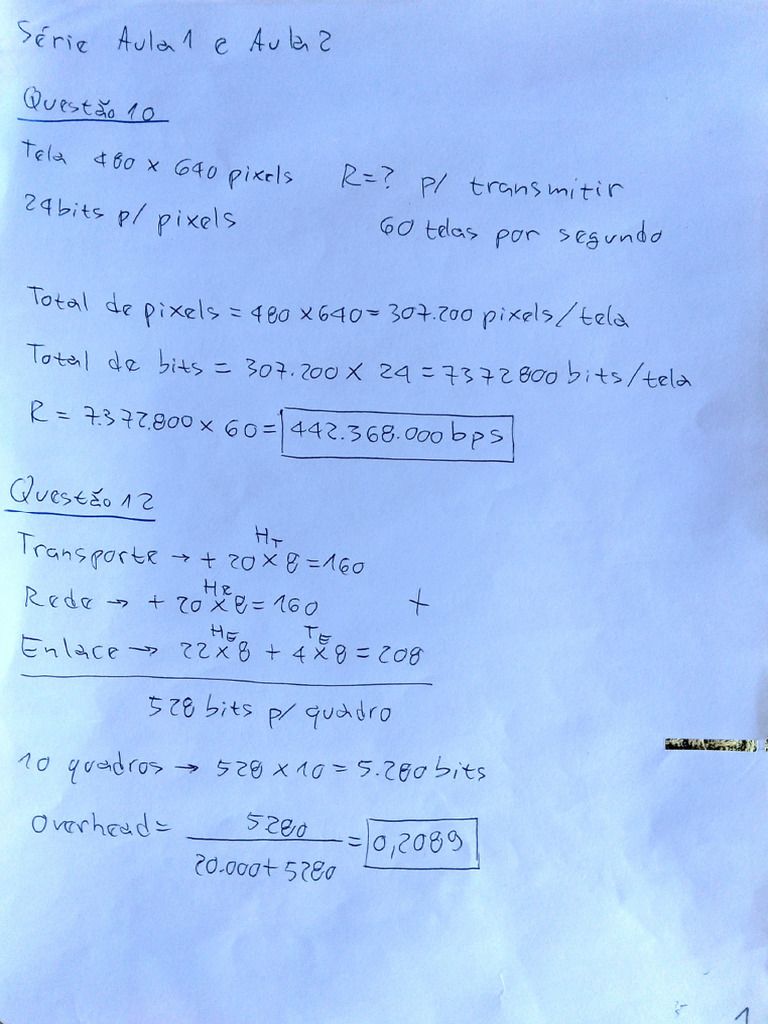 Série Aula 1 e Aula 2
Questão 10
Tela 480 x 640 pixels R=? p/ transmitir
24 bits p/ pixels 60 telas por segundo
Total de pixels = 480 x 640 = 307.200 pixels/tela
Total de bits = 307.200 x 24 = 7372800 bits/tela
R = 7.372.800 x 60 = 442.368.000 bps
Questão 12
HT
Transporte → + 20 x 8 = 160
HR
Rede → + 20 x 8 = 160 +
HE TE
Enlace → 22 x 8 + 4 x 8 = 208
528 bits p/ quadro
10 quadros → 528 x 10 = 5.280 bits
5280
Overhead = = 0,2089
20.000 + 5280
1